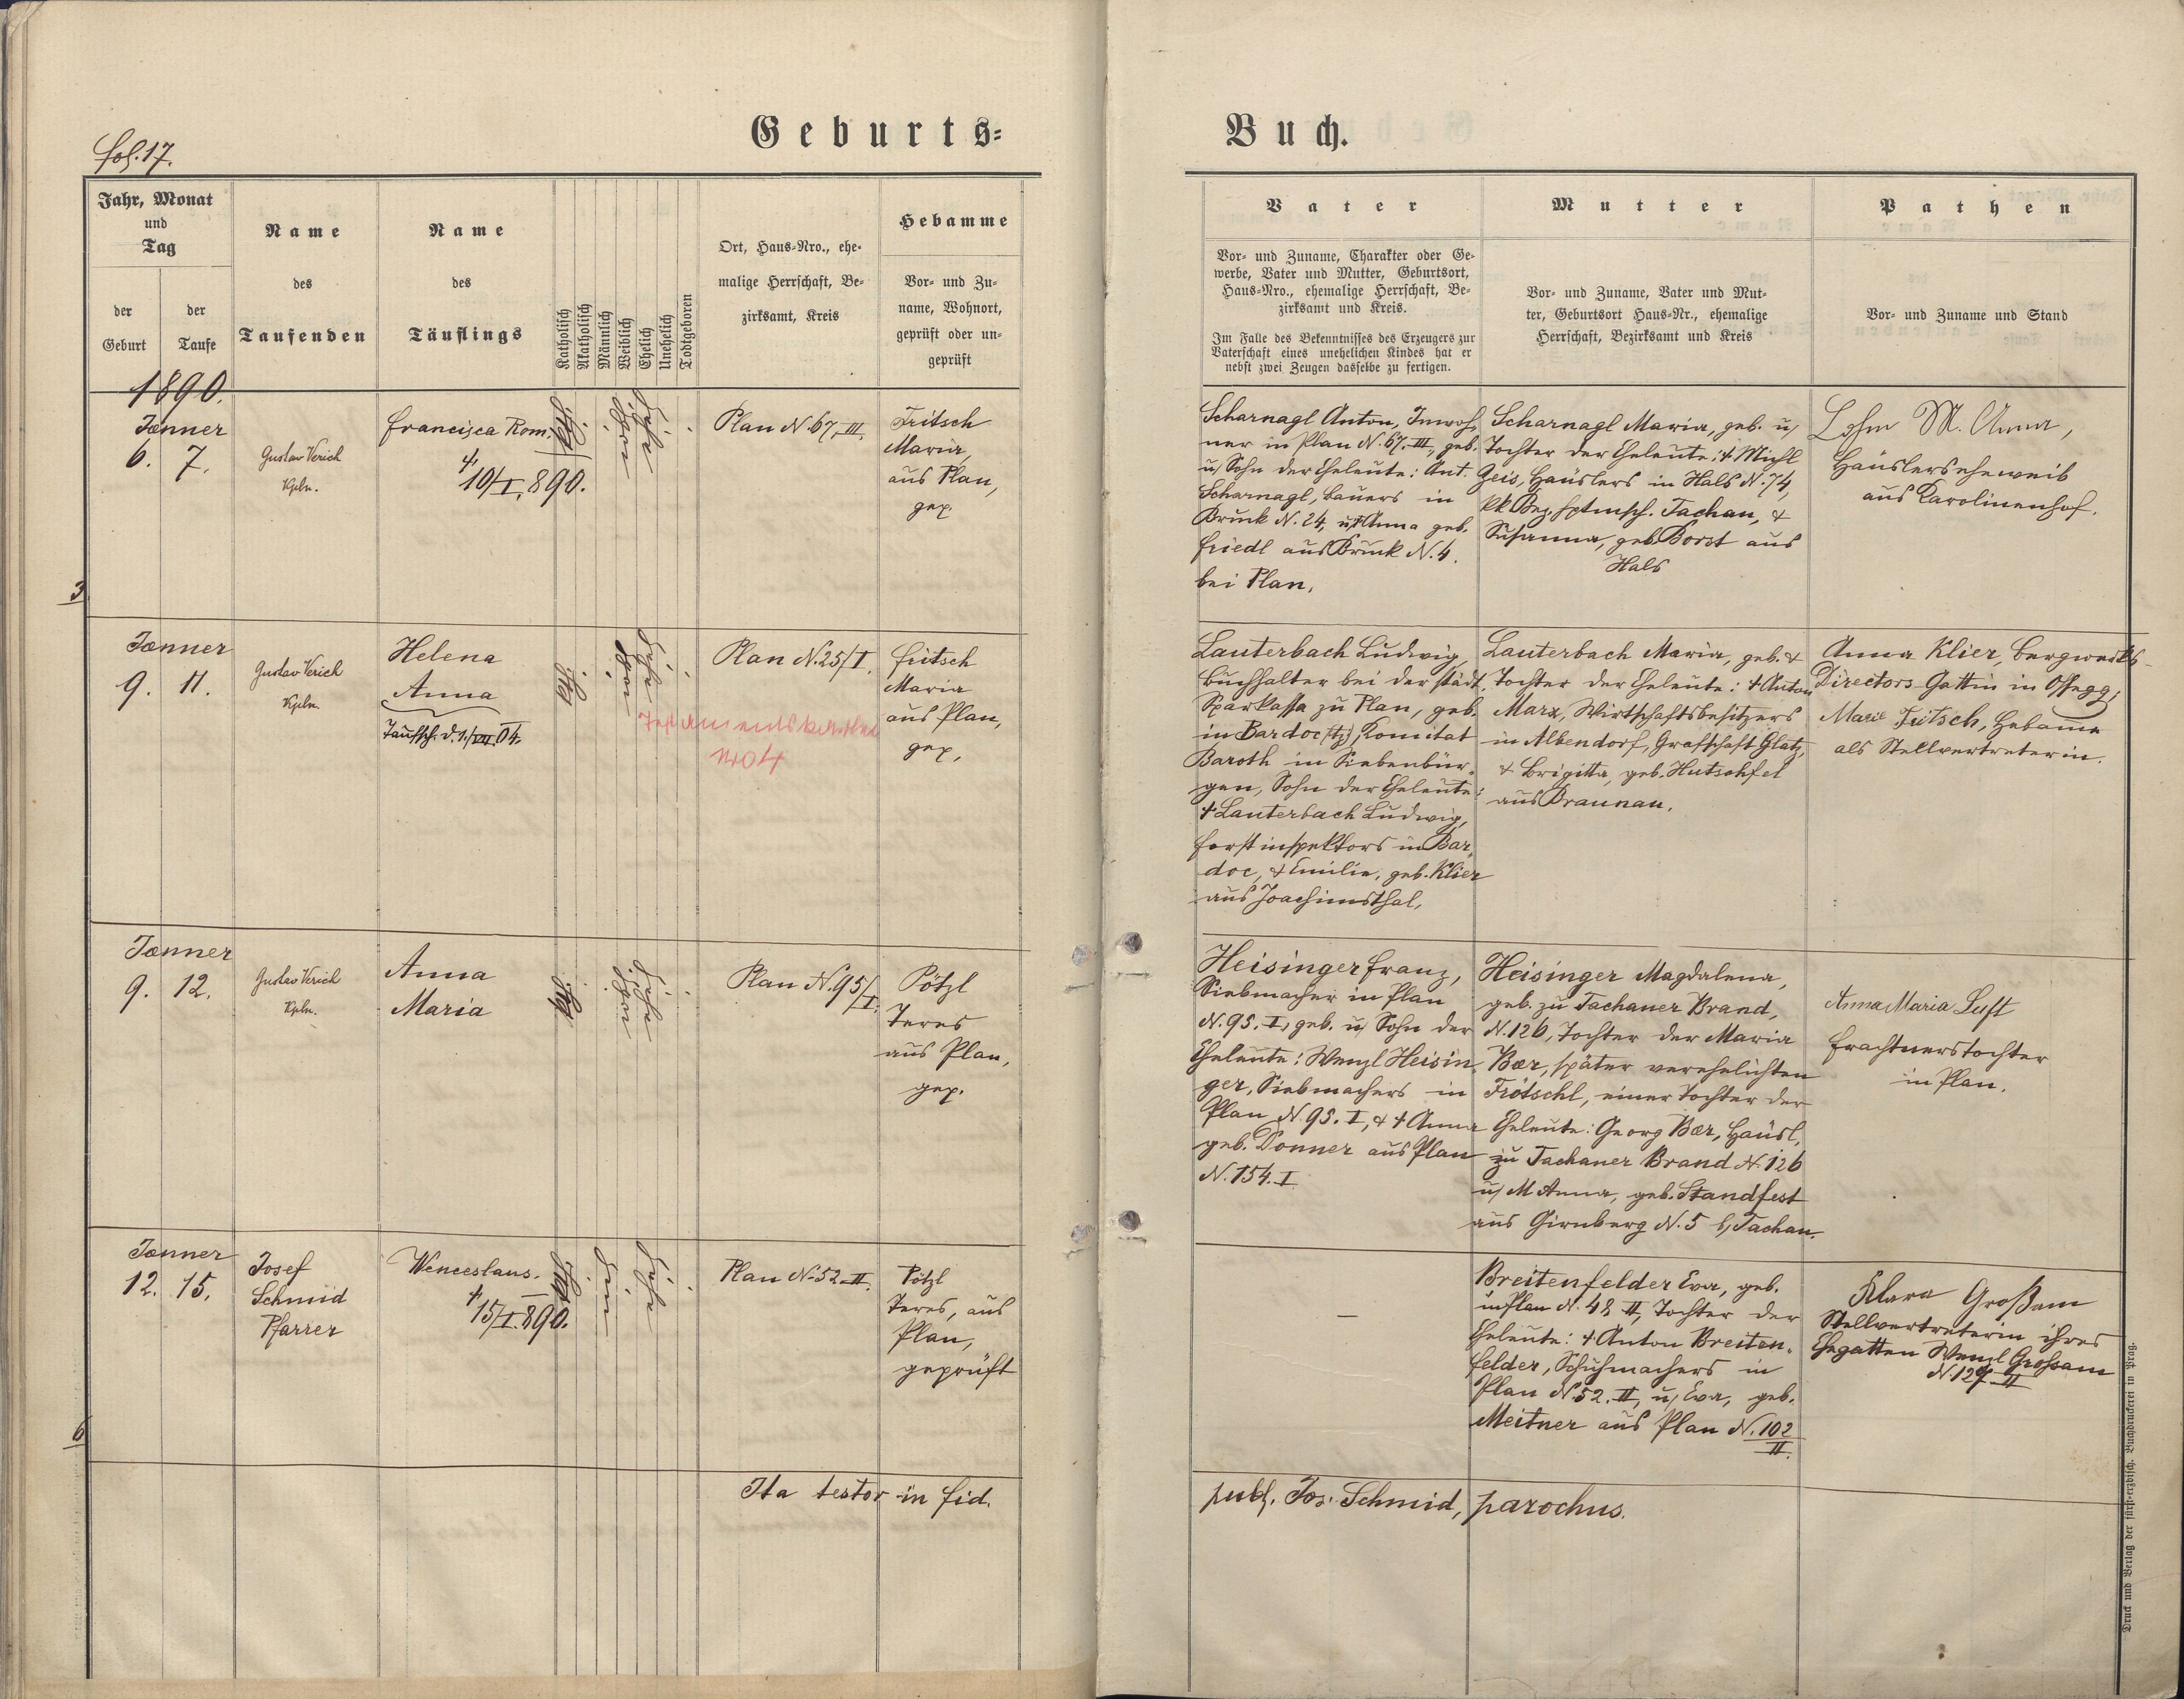 fol. 17.
Geburts-
Buch.
Jahr, Monat
und
Tag
der
Geburt
der
Taufe
Name
des
Taufenden
Name
des
Täuflings
Katholisch
Akatholisch
Männlich
Weiblich
Ehelich
Unehelich
Todtgeboren
Ort, Haus-Nro., ehe-
malige Herrschaft, Be-
zirksamt, Kreis
Hebamme
Vor- und Zu-
name, Wohnort,
geprüft oder un-
geprüft
Vater
Vor- und Zuname, Charakter oder Ge-
werbe, Vater und Mutter, Geburtsort,
Haus-Nro., ehemalige Herrschaft, Be-
zirksamt und Kreis.
Im Falle des Bekenntnisses des Erzeugers zur
Vaterschaft eines unehelichen Kindes hat er
nebst zwei Zeugen dasselbe zu fertigen.
Mutter
Vor- und Zuname, Vater und Mut-
ter, Geburtsort Haus-Nr., ehemalige
Herrschaft, Bezirksamt und Kreis
Pathen
Vor- und Zuname und Stand
1890.
Jänner
6. 7.
Gustav Verich
Kpln.
Francisca Rom.
†
10/I.890.
Plan N. 67, III.
Fritsch
Maria,
aus Plan,
gep.
Scharnagl Anton, Inwoh-
ner in Plan N. 67. III, geb.
u. Sohn der Eheleute: Ant.
Scharnagl, Bauers in
Bruck N. 24, u. † Anna geb.
Friedl aus Bruck N. 4.
bei Plan.
Scharnagl Maria, geb. u.
Tochter der Eheleute: † Michl
Zeis, Häuslers in Hals N. 74,
kk Bez. Hptmsch. Tachau, &
Susanna, geb. Borst aus
Hals
M. Anna,
Häuslerseheweib
aus Karolinenhof.
3
Jänner
9. 11.
Gustav Verich
Kpln.
Helena
Anna
Taufsch. d. 1./VIII. 04.
Plan N. 25/I.
Fritsch
Maria
aus Plan,
gep.
No 4
Lauterbach Ludwig,
Buchhalter bei der städt.
Sparkassa zu Plan, geb.
in Bardoc (tz), Komitat
Baroth in Siebenbür-
gen, Sohn der Eheleute:
† Lauterbach Ludwig,
Forstinspektors in Bar-
doc, & Emilie, geb. Klier
aus Joachimsthal.
Lauterbach Maria, geb. &
Tochter der Eheleute: † Anton
Marx, Wirtschaftsbesitzers
in Albendorf, Grafschaft Glatz,
& Brigitta, geb. Hutschfel
aus Braunau.
Anna Klier, Bergwerks-
Directors-Gattin in Ossegg,
Marie Fritsch, Hebamme
als Stellvertreterin.
Jänner
9. 12.
Gustav Verich
Kpln.
Anna
Maria
Plan N. 95/I.
Pötzl
Teres
aus Plan,
gep.
Heisinger Franz,
Siebmacher in Plan
N. 95. I, geb. u. Sohn der
Eheleute: Wenzl Heisin-
ger, Siebmachers in
Plan N. 95. I, & † Anna
geb. Donner aus Plan
N. 154. I
Heisinger Magdalena,
geb. zu Tachauer Brand,
N. 126, Tochter der Maria
Bær, später verehelichten
Frötschl, einer Tochter der
Eheleute: Georg Bær, Häusl.
zu Tachauer Brand N. 126
u. M Anna, geb. Standfest
aus Girnberg N. 5 b. Tachau.
Anna Maria Luft
Frachtnerstochter
in Plan.
Jänner
12. 15.
Josef
Schmid
Pfarrer
Wenceslaus.
†
15/I.890.
Plan N. 52. II.
Pötzl
Teres, aus
Plan,
geprüft
—
Breitenfelder Eva, geb.
in Plan N. 48 II, Tochter der
Eheleute: † Anton Breiten-
felder, Schuhmachers in
Plan N. 52. II, u. Eva, geb.
Meitner aus Plan N. 102
II.
Klara Großam
Stellvertreterin ihres
Ehegatten Wenzl Großam
N. 127-II
6
Ita testor in fid.
publ. Jos. Schmid, parochus.
Druck und Verlag der fürst-erzbisch. Buchdruckerei in Prag.